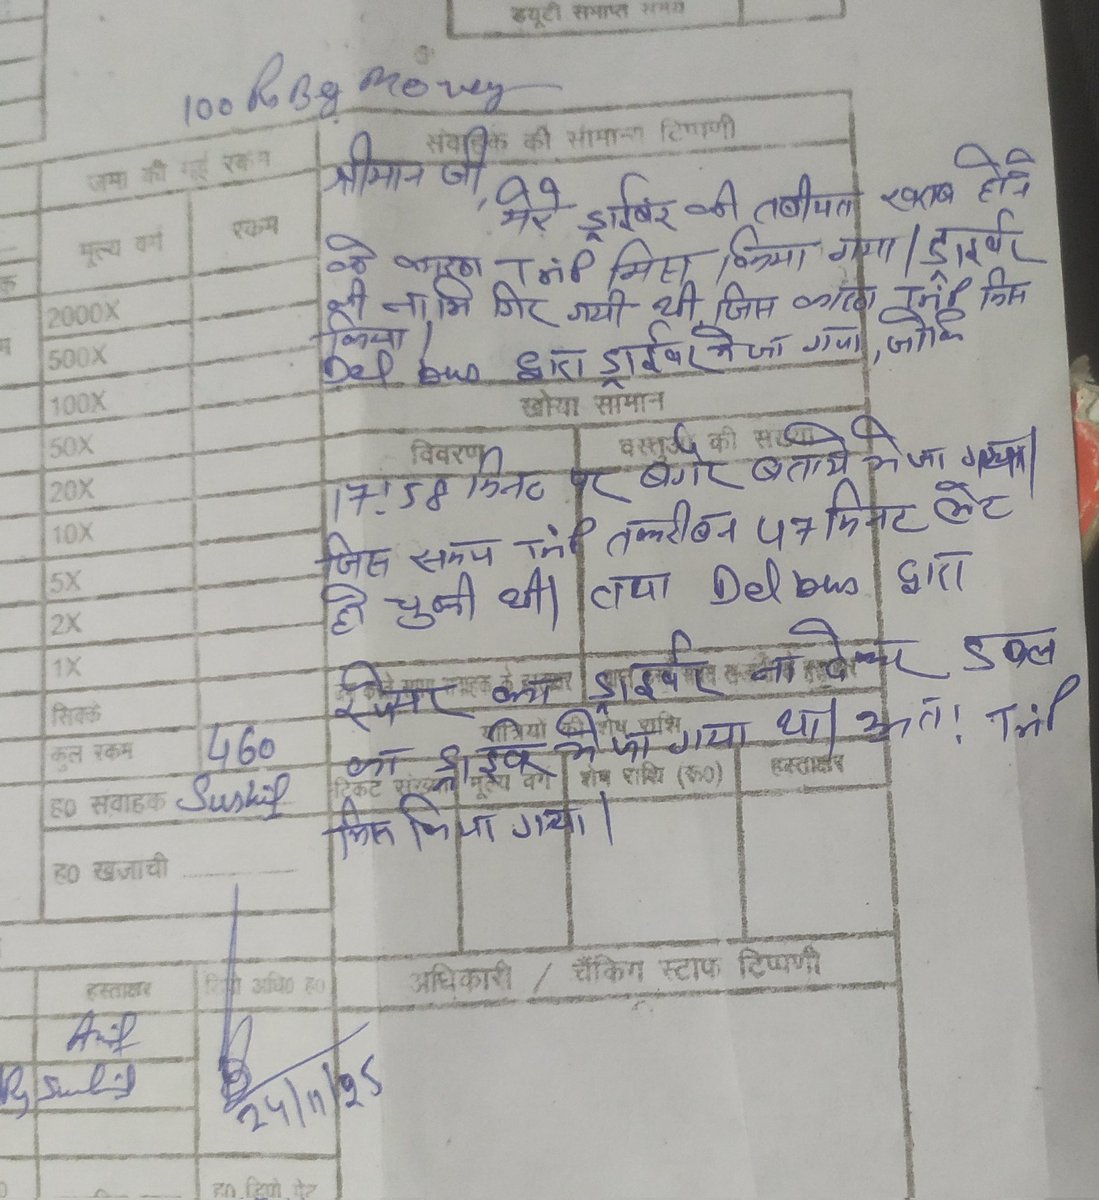 ड्यूटी समाप्त समय
100 Rs Bg Money
जमा की गई रकम
संवाहक की सामान्य टिप्पणी
मूल्य वर्ग
रकम
2000X
500X
100X
50X
20X
10X
5X
2X
1X
सिक्के
कुल रकम 460
ह0 संवाहक Sushil
ह0 खजांची
श्रीमान जी,
मेरे ड्राईवर की तबीयत खराब होने
के कारण Trip मिस किया गया। ड्राईवर
की नाभि गिर गयी थी, जिस कारण Trip मिस
किया।
Del bus द्वारा ड्राईवर भेजा गया, जोकि
खोया सामान
विवरण
वस्तुओं की संख्या
17:58 मिनट पर बगैर बताये भेजा गया।
जिस समय Trip तकरीबन 47 मिनट लेट
हो चुकी थी। तथा Del bus द्वारा
का ड्राईवर ना देकर डबल
यात्रियों की शेष राशि
का ड्राईवर भेजा गया था। अतः Trip
टिकट संख्या
मूल्य वर्ग
शेष राशि (रू0)
हस्ताक्षर
मिस किया गया।
अधिकारी / चैकिंग स्टाफ टिप्पणी
हस्ताक्षर
डिपो अधि0 ह0
Anil
Sushil
24/11/25
ह0 डिपो गेट